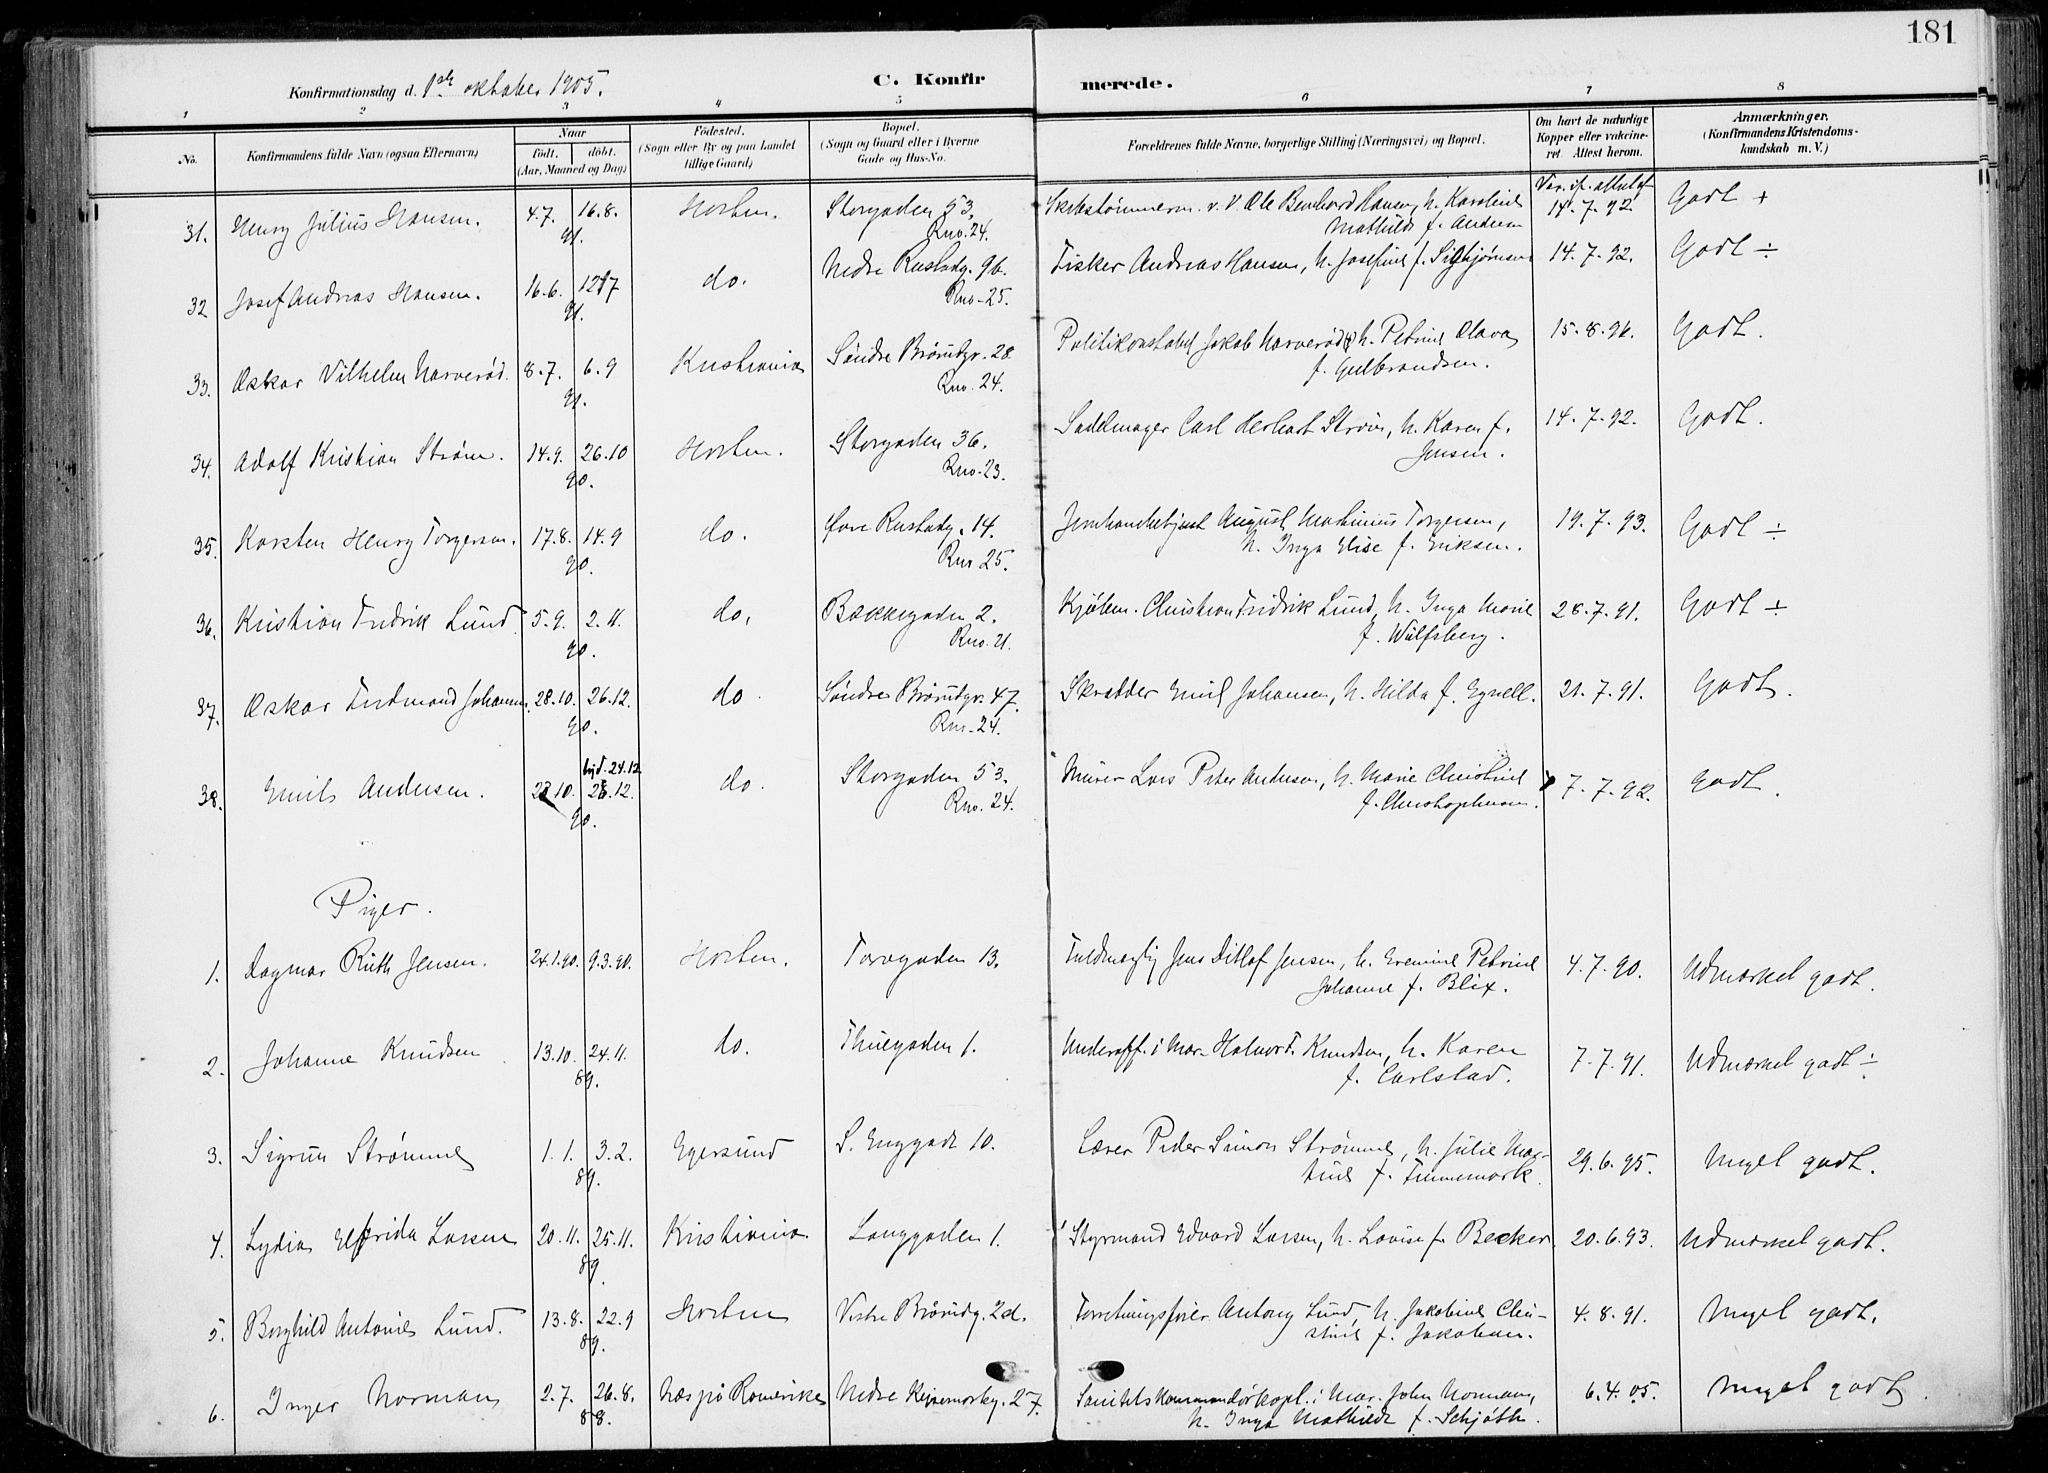 181
Konfirmationsdag d. 1ste oktober 1905.
C. Konfir
merede.
1 2 3 4 5 6 7 8
No.
Konfirmandens fulde Navn (ogsaa Efternavn)
Naar
født. døbt.
(Aar, Maaned og Dag)
Fødested.
(Sogn eller By og paa Landet
tillige Gaard)
Bopæl.
(Sogn og Gaard eller i Byerne
Gade og Hus-No.
Forældrenes fulde Navne, borgerlige Stilling (Næringsvei) og Bopæl.
Om havt de naturlige
Kopper eller vakcine-
ret Attest herom.
Anmærkninger.
(Konfirmandens Kristendoms-
kundskab m. V.)
31. Henry Julius Hansen. 4.7. 16.8. 91. Horten. Storgaden 53. Rno. 24. Ole Bernhard Hansen, h. Karoline Mathilde f. Andersen Vac. if. attest af 14.7.92. Godt +
32 Josef Andreas Hansen. 16.6. 12.7 91. do. Nedre Rustadg. 9b. Rno. 25. Fisker Andreas Hansen, h. Josefine f. Sigbjørnsen 14.7.92. Godt ÷
33. Oskar Vilhelm Narverød. 8.7. 6.9 91. Kristiania Søndre Brårudgr. 28. Rno. 24. Politikonstabel Jakob Narverød, h. Petrine Olava f. Gulbrandsen. 15.8.96. Godt.
34. Adolf Kristian Strøm. 14.9. 26.10 90. Horten. Storgaden 36. Rno. 23. Sadelmager Carl Herbart Strøm, h. Karen f. Jensen. 14.7.92. Godt.
35. Karsten Henry Torgersen. 17.8. 14.9 90. do. Øvre Rustadg. 14. Rno 25. August Mathinius Torgersen, h. Inga Elise f. Eriksen. 19.7.93. Godt ÷
36. Kristian Fredrik Lund. 5.9. 2.11. 90. do. Bakkegaden 2. Rno. 21. Kjøbm. Christian Fredrik Lund, h. Inga Marie f. Wulfsberg. 28.7.91. Godt ÷
37. Oskar Ferdinand Johansen. 28.10. 26.12. 90. do. Søndre Brårudgr. 47. Rno. 24. Skrædder Emil Johansen, h. Hilda f. Egnell. 21.7.91. Godt.
38. Emil Andersen. 22.10. hjd. 24.12. 28.12. 90. do. Storgaden 53. Rno. 24. Murer Lars Peter Andersen, h. Marie Christine f. Christophersen. 7.7.92. Godt.
Piger.
1. Dagmar Ruth Jensen. 24.1.90. 9.3.90. Horten. Torvgaden 13. Fuldmægtig Jens Ditlof Jensen, h. Petrine Johanne f. Blix. 4.7.90. Udmærket godt.
2. Johanne Knudsen. 13.10. 24.11. 89. do. Thuegaden 1. Underoff. i Mar. Halvor T. Knudsen, h. Karen f. Carlstad. 7.7.91. Udmærket godt ÷
3. Sigrun Strømme 1.1. 3.2. 89. Egersund S. Enggade 10. Lærer Peder Simon Strømme, h. Julie Mar- tine f. Finnemark. 29.6.95. Meget godt.
4. Lydia Elfrida Larsen 20.11. 25.11. 89. Kristiania. Langgaden 1. Styrmand Edvard Larsen, h. Lovise f. Becker. 20.6.93. Udmærket godt.
5. Borghild Antonie Lund. 13.8. 22.9 89. Horten Vestre Brårudg. 2d. Forretningsfører Antony Lund, h. Jakobine Chri- stine f. Jakobsen. 4.8.91. Meget godt.
6. Inger Norman 2.7. 26.8. 88. Næs på Romerike Nedre Keisemarkg. 27. Sanitetskommandørkapt. i Mar. John Normann, h. Inga Mathilde f. Schjøth. 6.4.05. Meget godt.